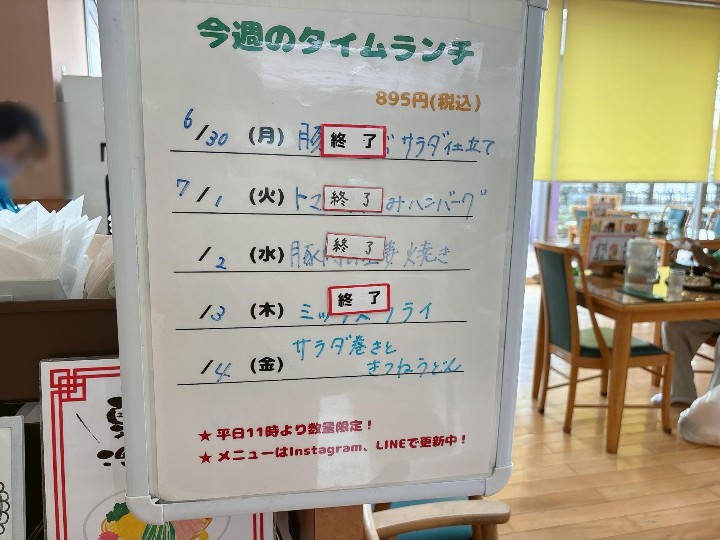 今週のタイムランチ
895円(税込)
6/30 (月) 豚 終了 サラダ仕立て
7/1 (火) トマ 終了 みハンバーグ
/2 (水) 豚 終了 焼き
/3 (木) ミックスフライ 終了
/4 (金) サラダ巻きと
きつねうどん
★平日11時より数量限定!
★メニューはInstagram、LINEで更新中!